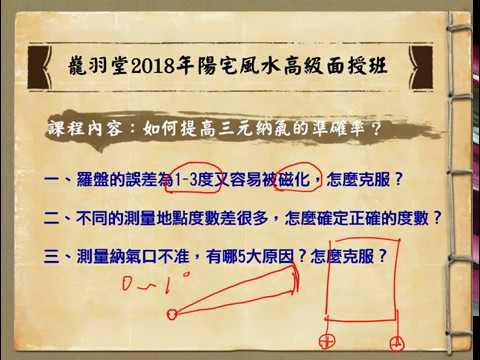 龍羽堂2018年陽宅風水高級面授班
課程內容：如何提高三元納氣的準確率？
一、羅盤的誤差為1-3度又容易被磁化，怎麼克服？
二、不同的測量地點度數差很多，怎麼確定正確的度數？
三、測量納氣口不准，有哪5大原因？怎麼克服？
0~1°